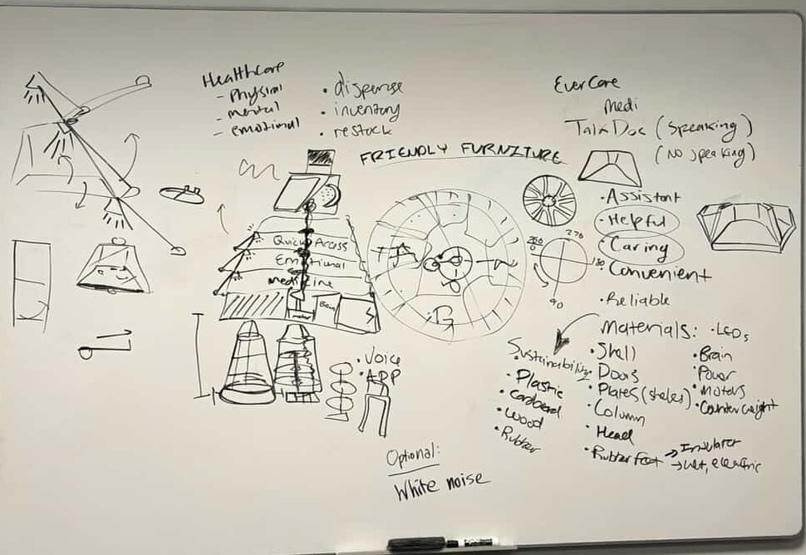 Healthcare
- Physical
- mental
- emotional
• dispense
• inventory
• restock
FRIENDLY FURNITURE
EverCare
Medi
TalkDoc (Speaking)
(No speaking)
• Assistant
• Helpful
• Caring
• Convenient
• Reliable
270
180
90
0
Quick Access
Emotional
medicine
• Voice
• APP
Optional:
White noise
Sustainability:
• Plastic
• cardboard
• Wood
• Rubber
Materials:
• Shell
• Doors
• Plates (shelves)
• Column
• Head
• Rubber foot → Insulator
→ wet, electric
• LEDs
• Brain
• Power
• Motors
• Counter weight